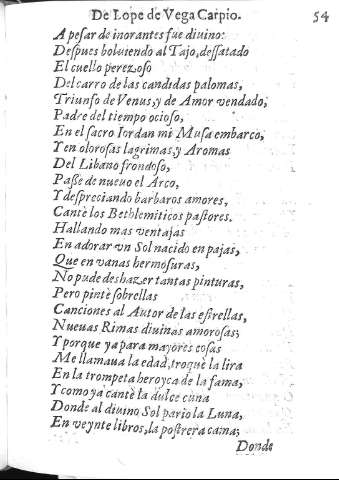 De Lope de Vega Carpio. 54
A pesar de inorantes fue diuino:
Despues boluiendo al Tajo, dessatado
El cuello perezoso
Del carro de las candidas palomas,
Triunfo de Venus, y de Amor vendado,
Padre del tiempo ocioso,
En el sacro Iordan mi Musa embarco,
Y en olorosas lagrimas, y Aromas
Del Libano frondoso,
Passe de nueuo el Arco,
Y despreciando barbaros amores,
Cantè los Bethlemiticos pastores.
Hallando mas ventajas
En adorar vn Sol nacido en pajas,
Que en vanas hermosuras,
No pude deshazer tantas pinturas,
Pero pintè sobrellas
Canciones al Autor de las estrellas,
Nueuas Rimas diuinas amorosas;
Y porque ya para mayores cosas
Me llamaua la edad, troquè la lira
En la trompeta heroyca de la fama,
Y como ya cantè la dulce cuna
Donde al diuino Sol pario la Luna,
En veynte libros, la postrera cama;
Donde